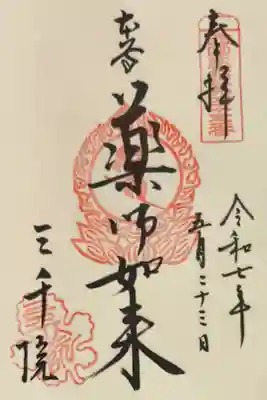 奉拝
令和七年
五月二十三日
本尊
薬師如来
三千院